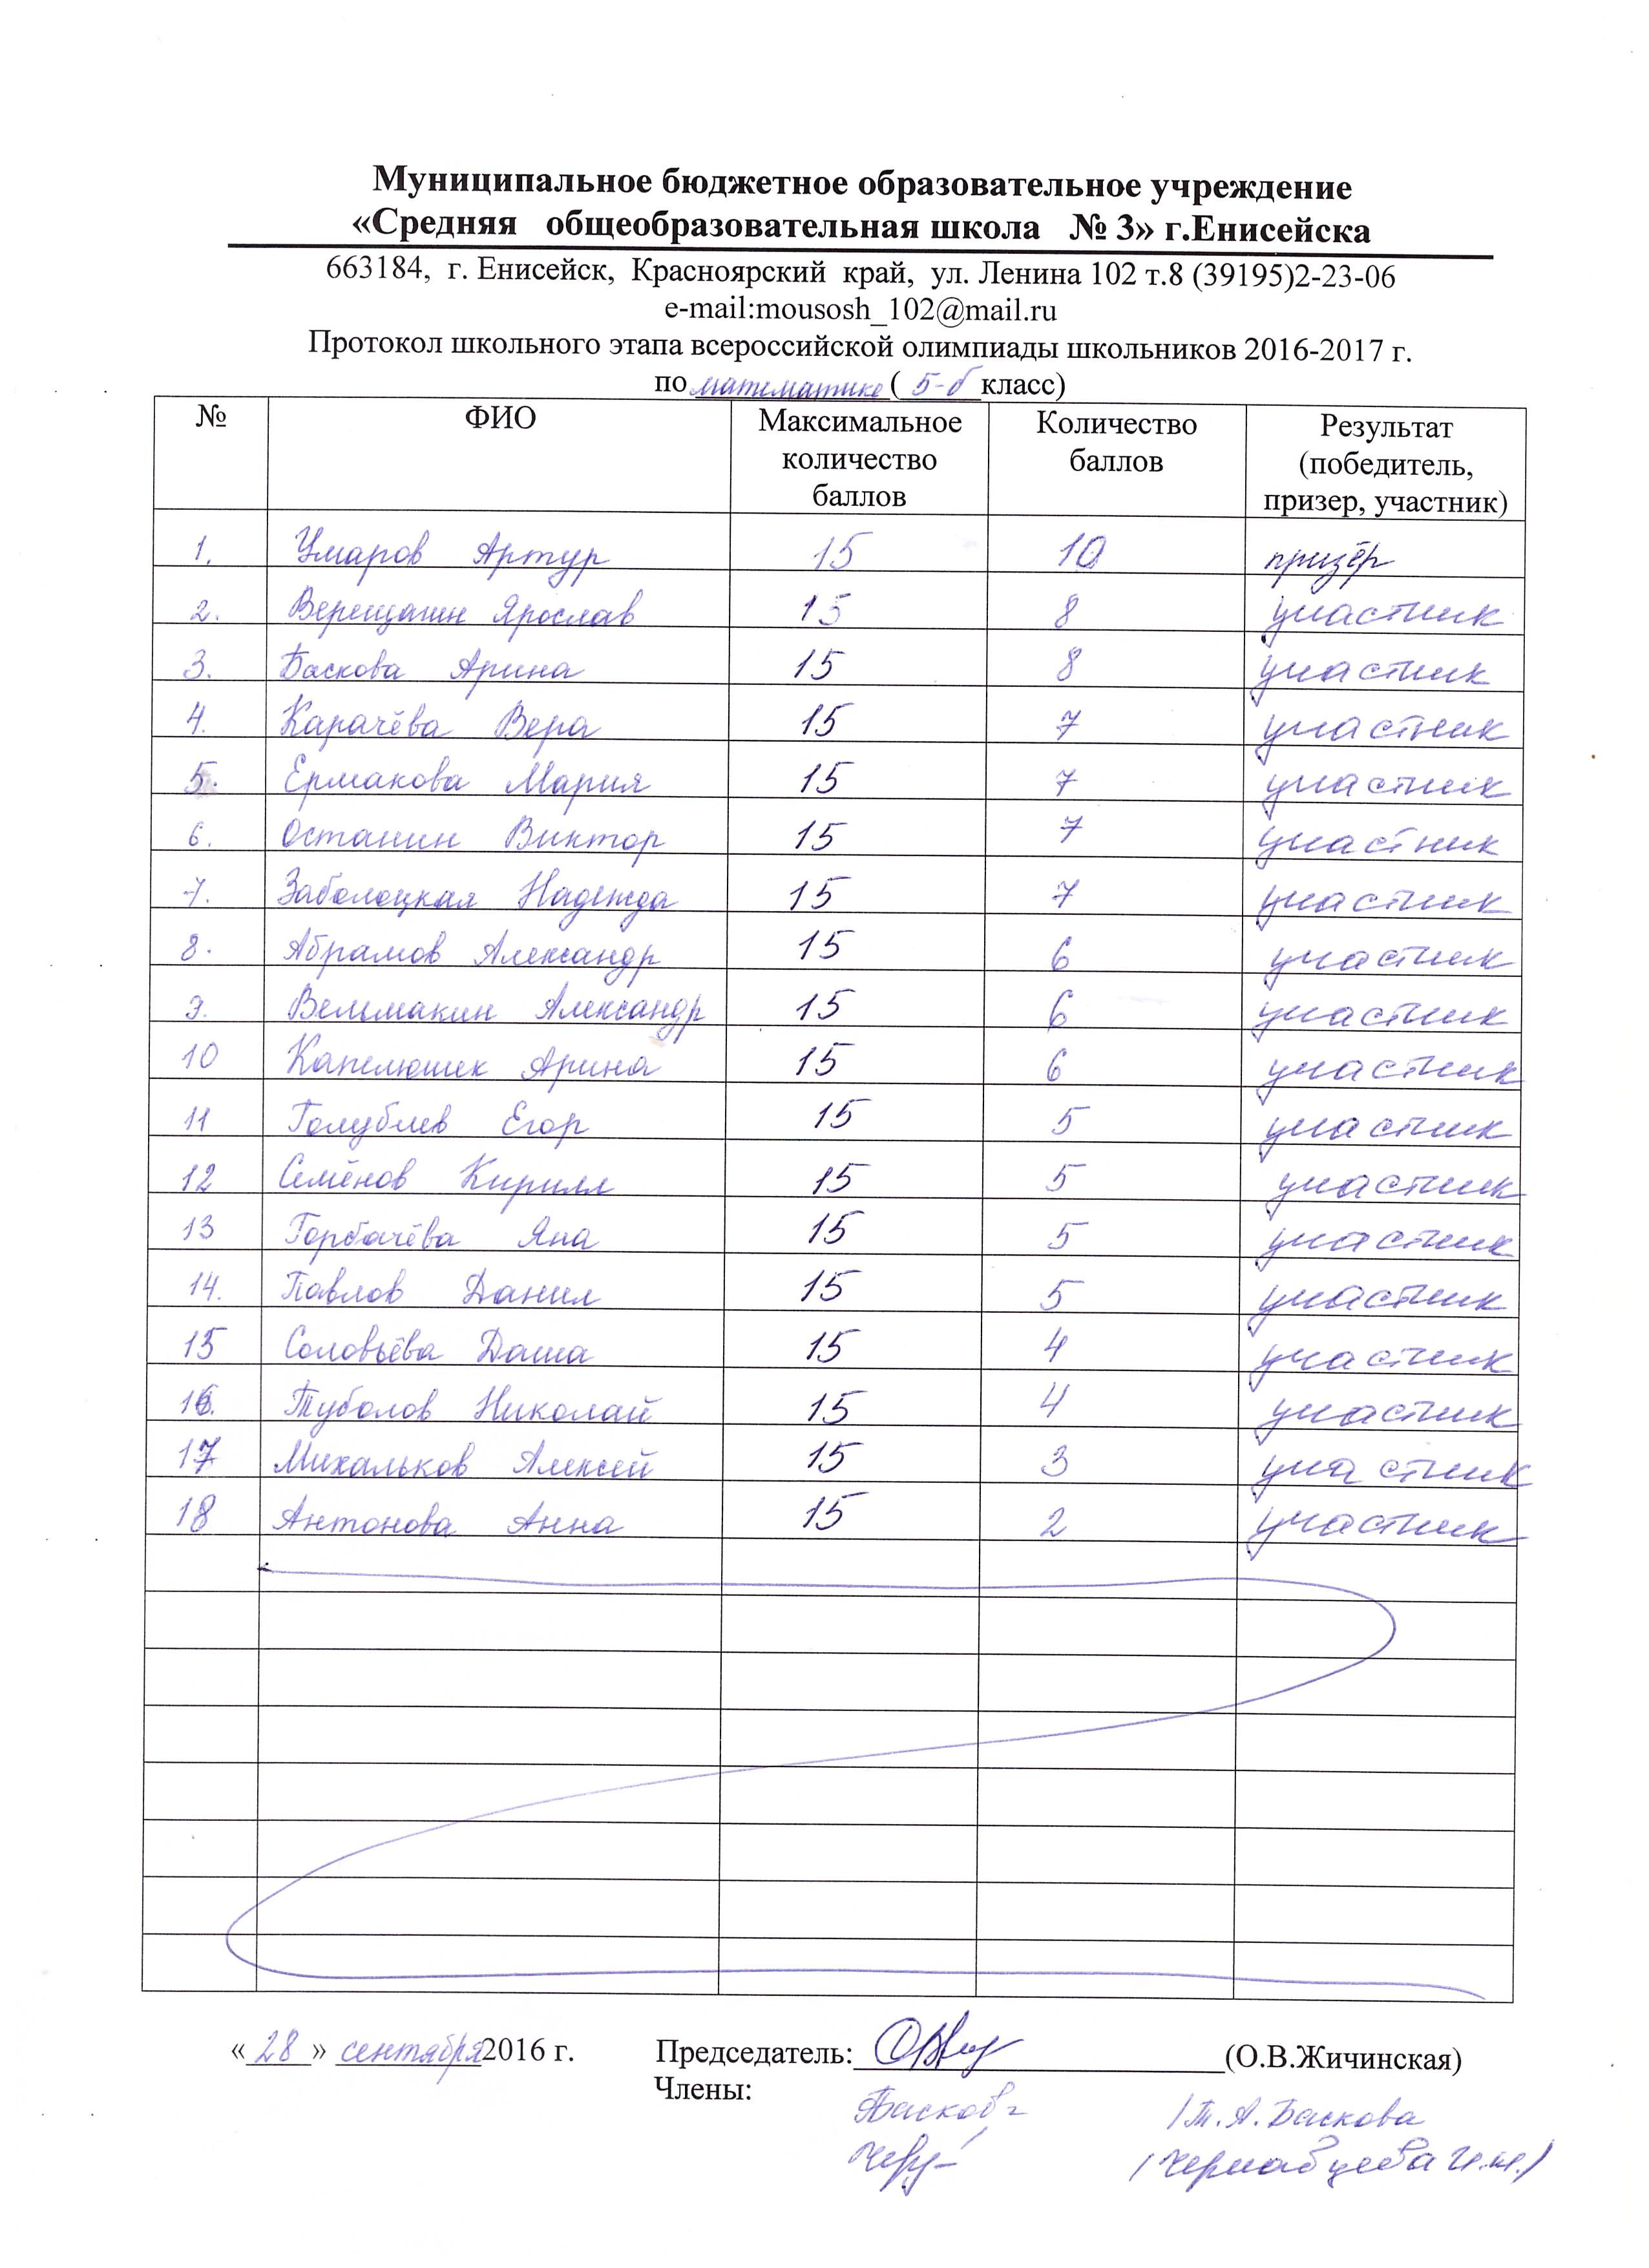 Муниципальное бюджетное образовательное учреждение
«Средняя общеобразовательная школа № 3» г.Енисейска
663184, г. Енисейск, Красноярский край, ул. Ленина 102 т.8 (39195)2-23-06
e-mail:mousosh_102@mail.ru
Протокол школьного этапа всероссийской олимпиады школьников 2016-2017 г.
по математике ( 5-б класс)
№ ФИО Максимальное количество баллов Количество баллов Результат (победитель, призер, участник)
1. Умаров Артур 15 10 призёр
2. Верещагин Ярослав 15 8 участник
3. Баскова Арина 15 8 участник
4. Карачёва Вера 15 7 участник
5. Ермакова Мария 15 7 участник
6. Останин Виктор 15 7 участник
7. Заболоцкая Надежда 15 7 участник
8. Абрамов Александр 15 6 участник
9. Вельмакин Александр 15 6 участник
10 Капелюшек Арина 15 6 участник
11 Голублев Егор 15 5 участник
12 Семёнов Кирилл 15 5 участник
13 Горбачёва Яна 15 5 участник
14. Павлов Данил 15 5 участник
15 Соловьёва Даша 15 4 участник
16. Туболов Николай 15 4 участник
17 Михальков Алексей 15 3 участник
18 Антонова Анна 15 2 участник
«28» сентября 2016 г. Председатель: (О.В.Жичинская)
Члены:
Басков /Т.А.Баскова
(Чернавцева И.И.)